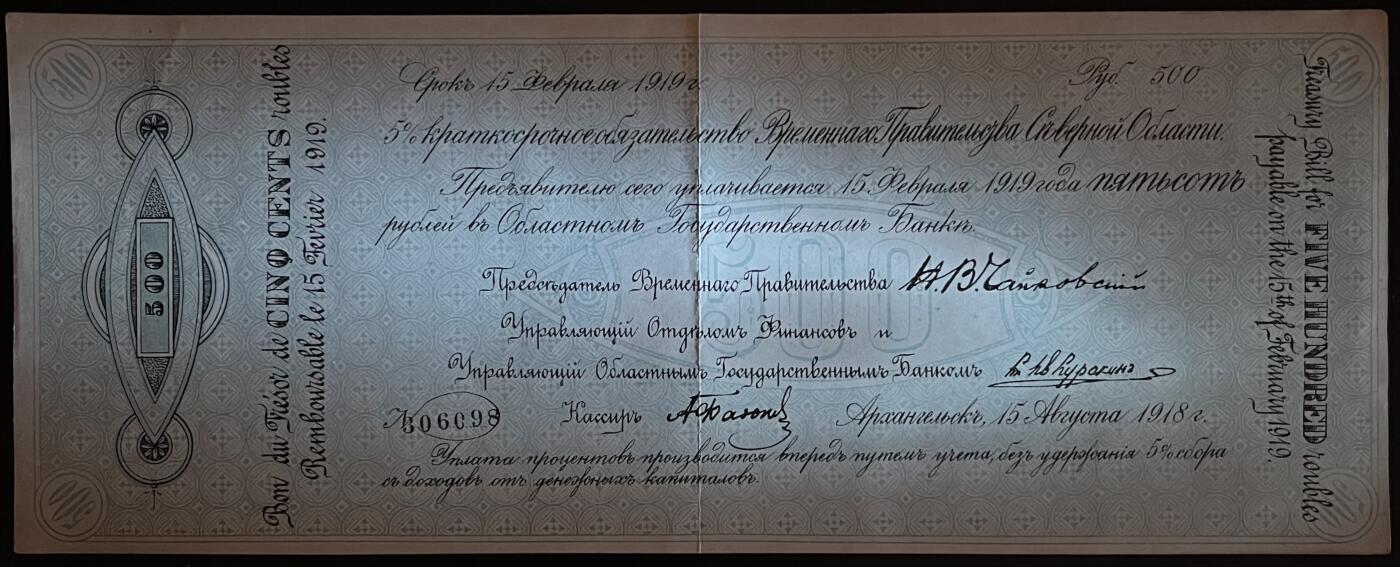 500
500
Срокъ 15 Февраля 1919 г.
Руб. 500
5% краткосрочное обязательство Временнаго Правительства Сѣверной Области.
Предъявителю сего уплачивается 15 Февраля 1919 года пятьсотъ
рублей въ Областномъ Государственномъ Банкѣ.
500
Предсѣдатель Временнаго Правительства Н. В. Чайковскій
Управляющій Отдѣломъ Финансовъ и
Управляющій Областнымъ Государственнымъ Банкомъ Куракинъ
№ 306098 Кассиръ
Архангельскъ, 15 Августа 1918 г.
Уплата процентовъ производится впередъ путемъ учета, безъ удержанія 5% сбора
съ доходовъ отъ денежныхъ капиталовъ.
500
Bon du Trésor de CINQ CENTS roubles
Remboursable le 15 Fevrier 1919.
Treasury Bill for FIVE HUNDRED roubles
payable on the 15th of February 1919.
500
500